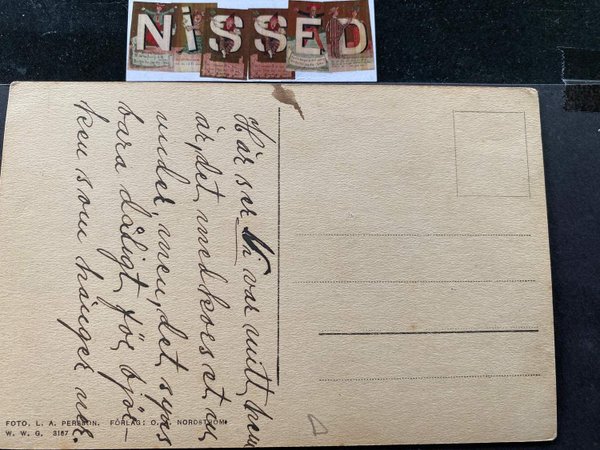 NISSED
Här ser Ni var mitt hem
är, det med korset
under, men, det syns
bara dåligt för björ-
ken som hänger ner.
FOTO. L. A. PERSSON. FÖRLAG: O. NORDSTRÖM.
W. W. G. 3187